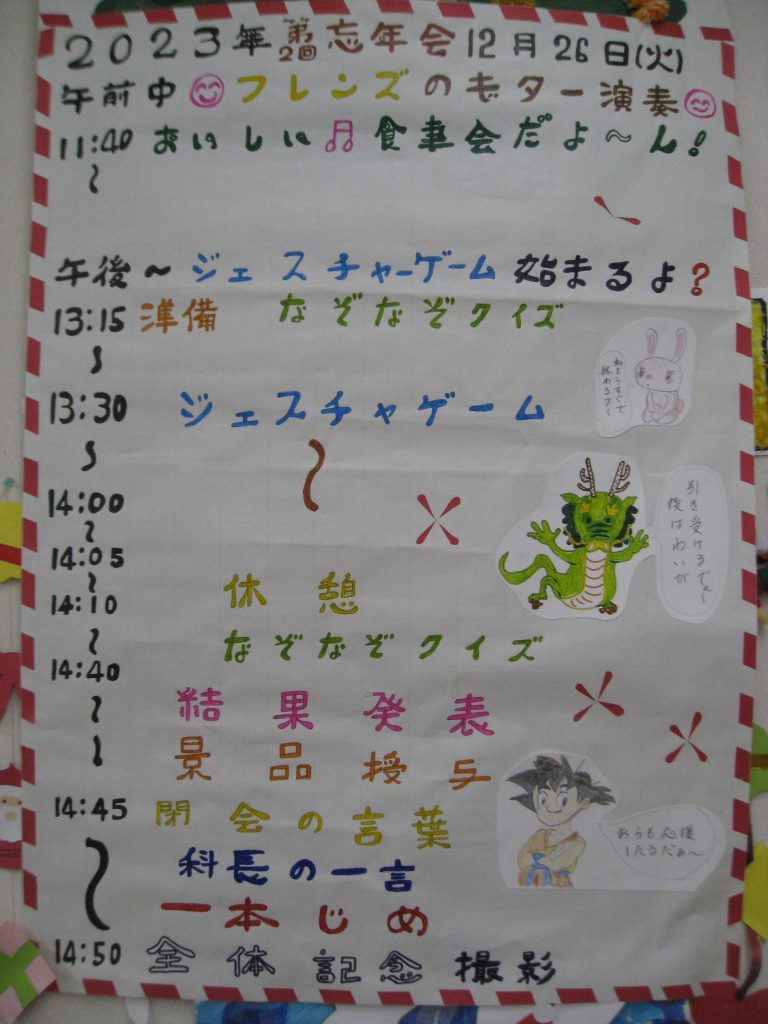 2023年第2回忘年会12月26日(火)
午前中 フレンズのギター演奏
11:40 おいしい♫食事会だよ～ん!
～
午後～ジェスチャーゲーム始まるよ?
13:15 準備 なぞなぞクイズ
～
私もうすぐで
終わるワ～
13:30 ジェスチャゲーム
～
14:00
～
引き受けるぞぇ～
後はわいが
14:05
～
14:10 休憩
～
なぞなぞクイズ
14:40
～
結果発表
景品授与
14:45 閉会の言葉
おらも応援
したるだぁ～
科長の一言
～
一本じめ
14:50 全体記念撮影